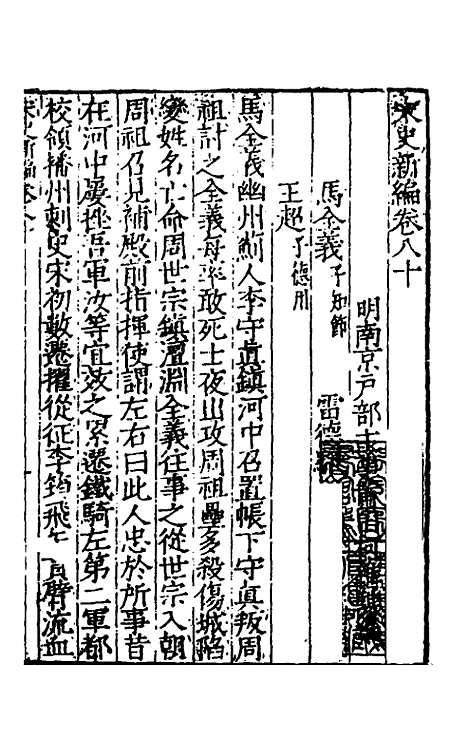 宋史新編卷八十
明南京戶部主
馬全義子知節 雷德
王超子德用
馬全義幽州薊人李守真鎮河中召置帳下守真叛周
祖討之全義每率敢死士夜出攻周祖壘多殺傷城陷
變姓名亡命周世宗鎮澶淵全義往事之從世宗入朝
周祖召見補殿前指揮使謂左右曰此人忠於所事昔
在河中屢挫吾軍汝等宜效之累遷鐵騎左第二軍都
校領播州刺史宋初數遷擢從征李筠飛 貫臂流血
宋史新編卷八